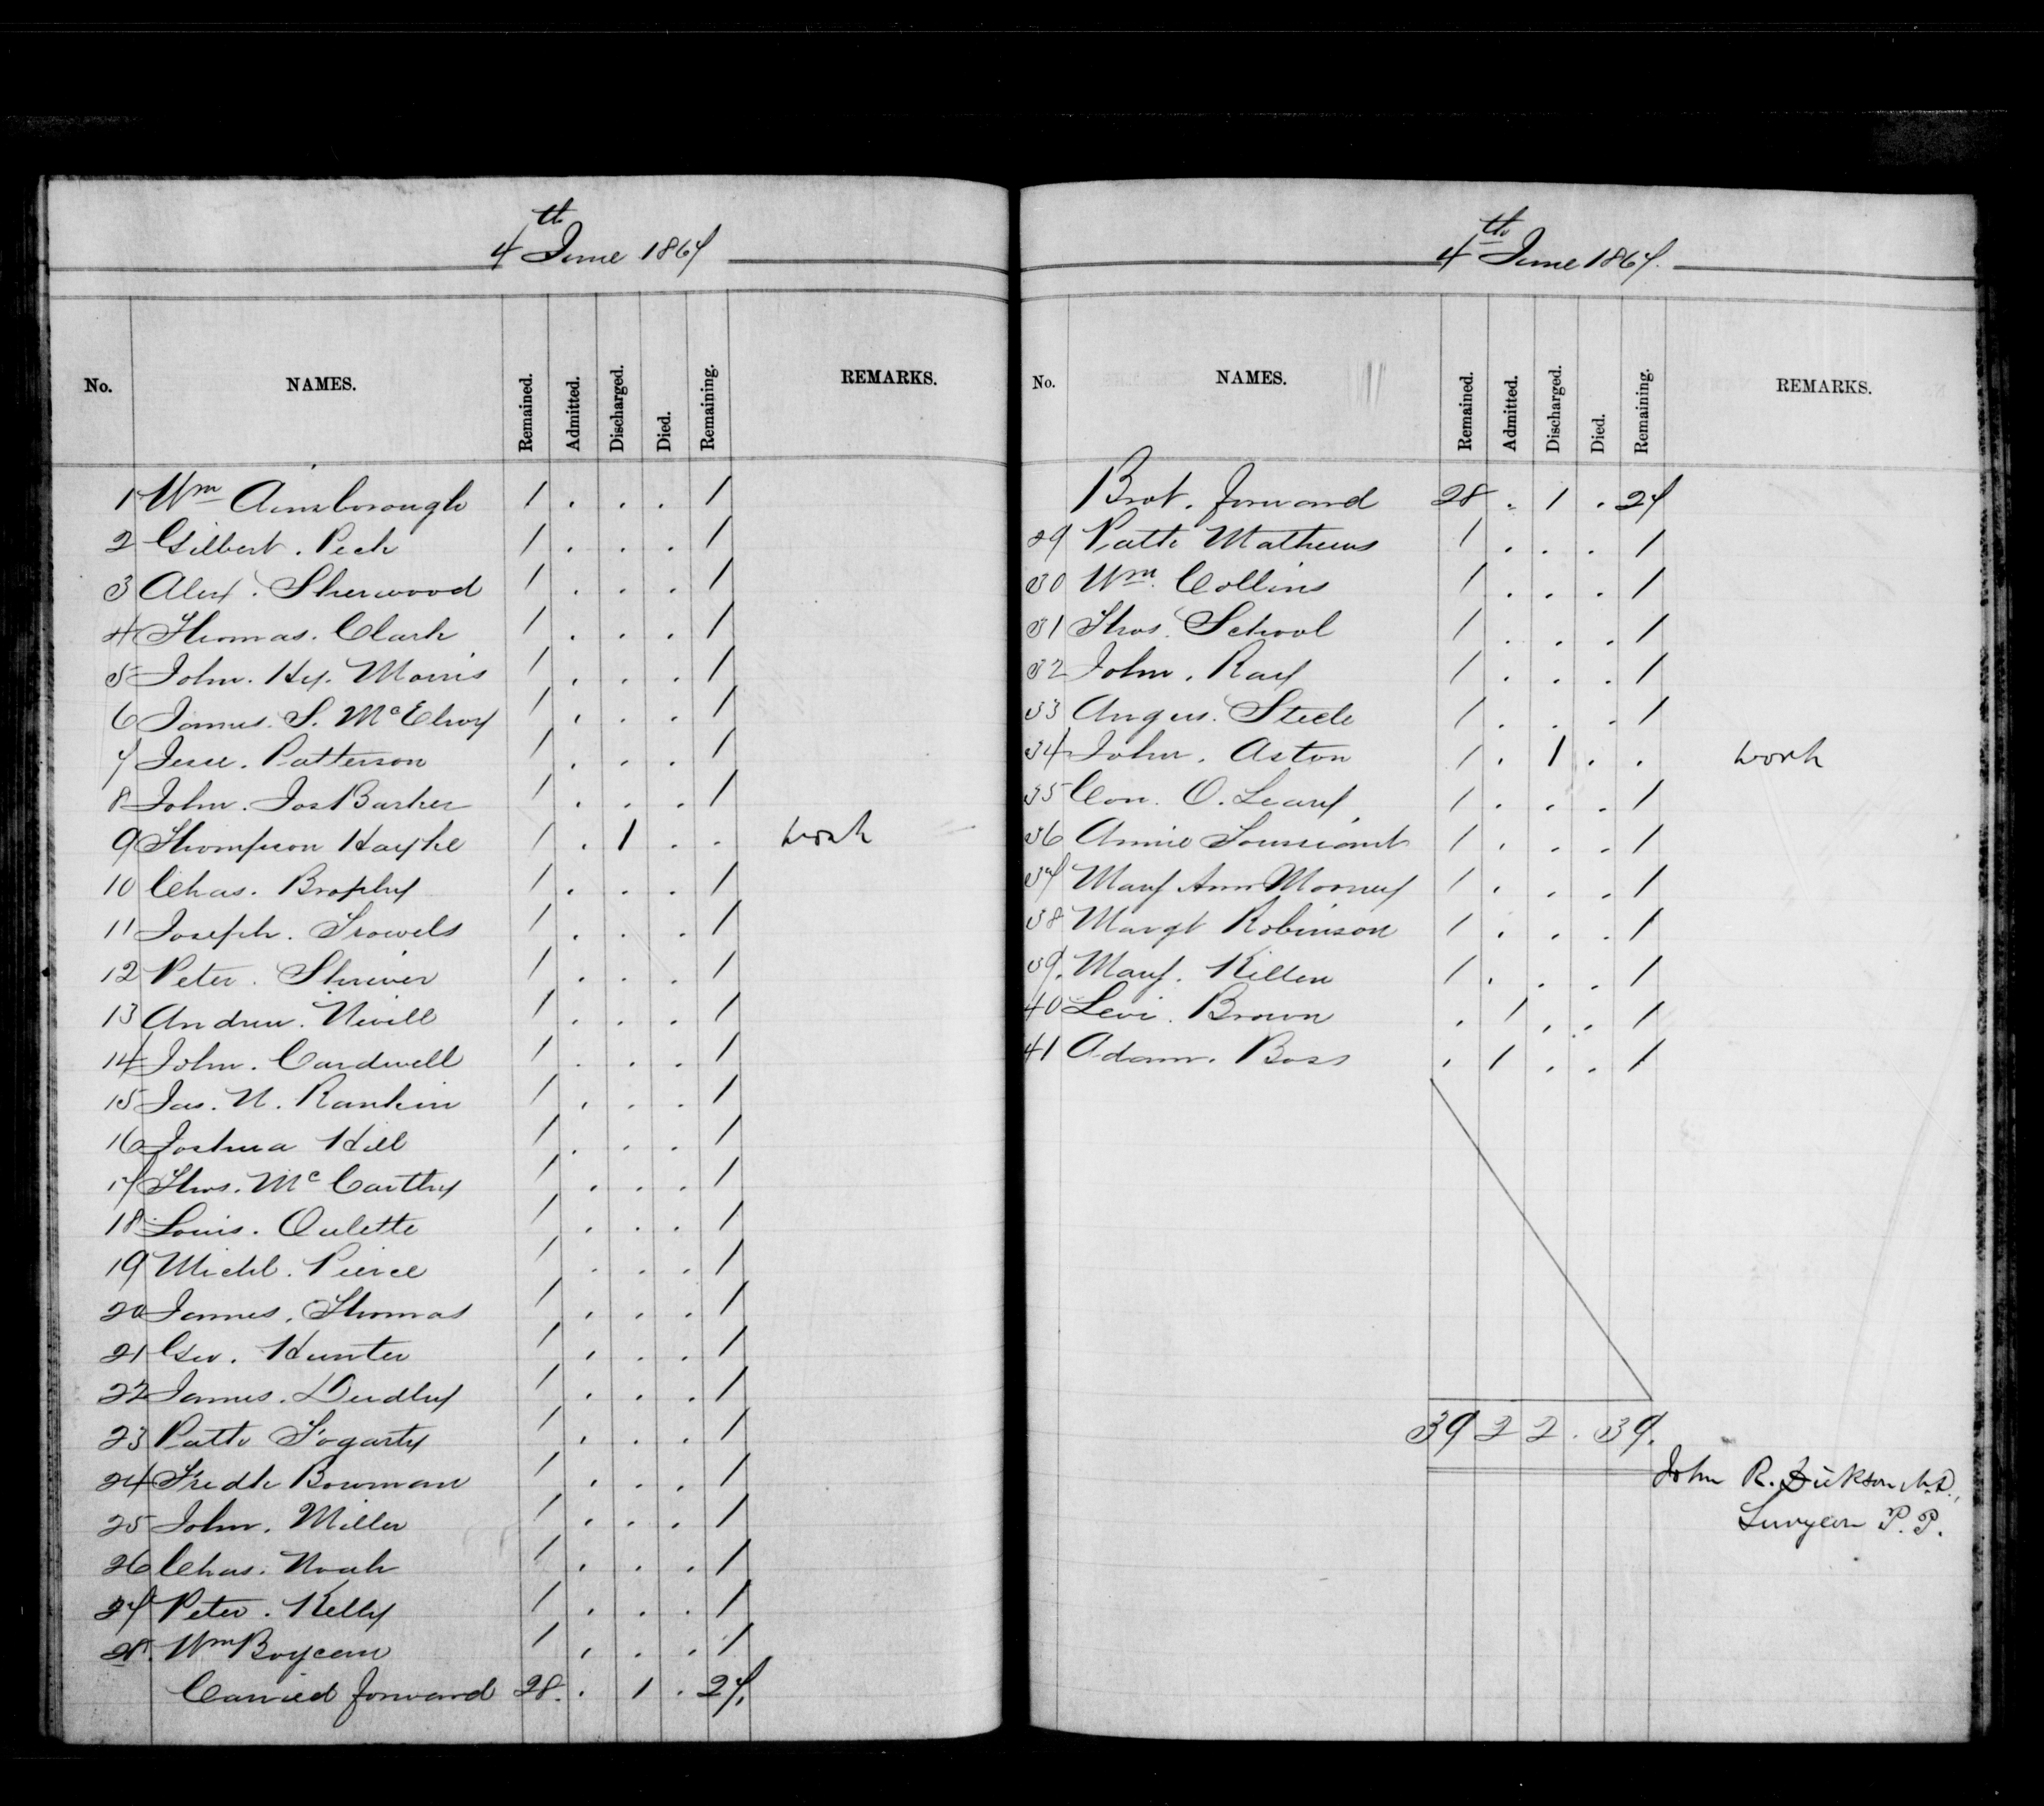 4th June 1867
No. NAMES. Remained. Admitted. Discharged. Died. Remaining. REMARKS.
1 Wm Ainsborough 1 . . . 1
2 Gilbert . Peck 1 . . . 1
3 Alex . Sherwood 1 . . . 1
4 Thomas . Clark 1 . . . 1
5 John . Hy . Morris 1 . . . 1
6 James . S. McElroy 1 . . . 1
7 Jesse . Patterson 1 . . . 1
8 John . Jos Barker 1 . . . 1
9 Thompson 1 . 1 . . work
10 Chas . Brophy 1 . . . 1
11 Joseph . Trowels 1 . . . 1
12 Peter . Shriver 1 . . . 1
13 Andrew . Nevill 1 . . . 1
14 John . Cardwell 1 . . . 1
15 Jas . N . Rankin 1 . . . 1
16 Joshua Hill 1 . . . 1
17 Thos . McCarthy 1 . . . 1
18 Louis . Oulette 1 . . . 1
19 Michl . Pierce 1 . . . 1
20 James . Thomas 1 . . . 1
21 Geo . Hunter 1 . . . 1
22 James . Dudley 1 . . . 1
23 Patk Fogarty 1 . . . 1
24 Fredk Bowman 1 . . . 1
25 John . Miller 1 . . . 1
26 Chas . Noah 1 . . . 1
27 Peter . Kelly 1 . . . 1
28 . Wm Boyceau 1 . . . 1
Carried forward 28 . . 1 . 27 .
4th June 1867 .
No. NAMES. Remained. Admitted. Discharged. Died. Remaining. REMARKS.
Brot . forward 28 . 1 . 27
29 Patk Mathews 1 . . . 1
30 Wm . Collins 1 . . . 1
31 Thos . School 1 . . . 1
32 John . Ray 1 . . . 1
33 Angus . Steele 1 . . . 1
34 John . Aston 1 . 1 . . work
35 Con . O . Leary 1 . . . 1
36 Annie 1 . . . 1
37 Mary Ann Mooney 1 . . . 1
38 Margt Robinson 1 . . . 1
39 . Mary . Killen 1 . . . 1
40 Levi . Brown . 1 . . 1
41 Adam . Boss . 1 . . 1
39 2 2 . 39 .
John R. Dickson M.D.,
Surgeon P. P.